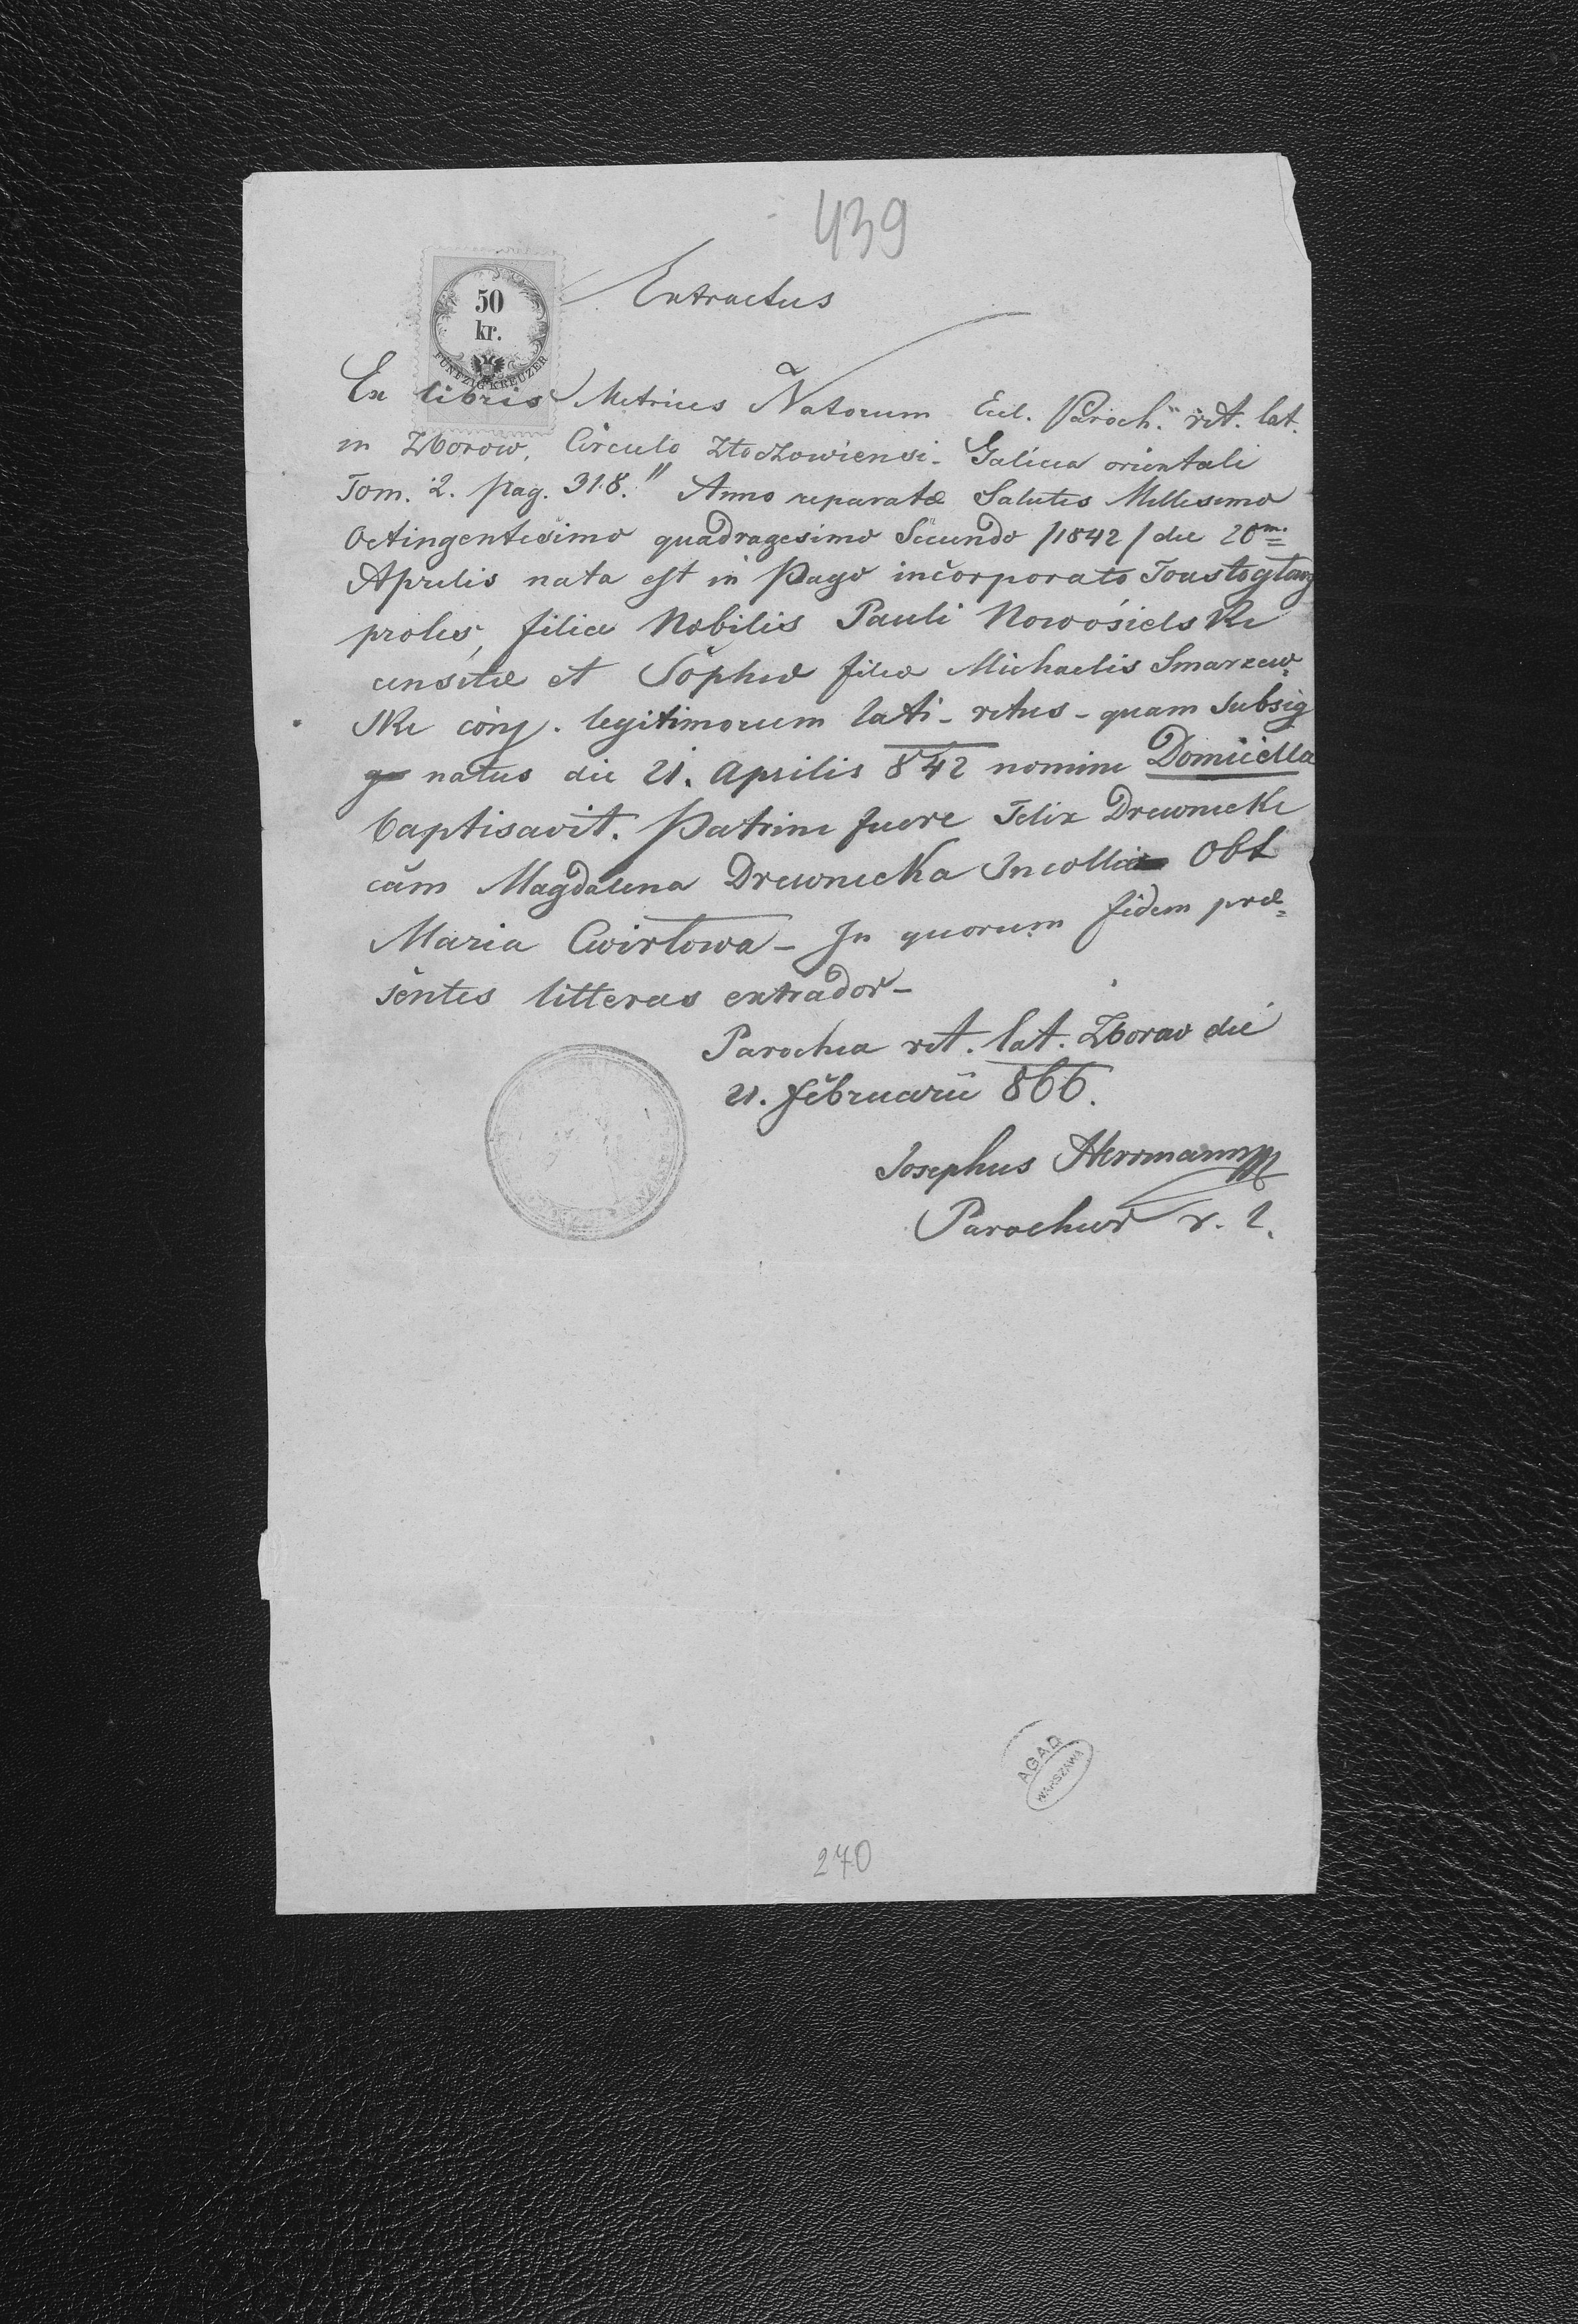 439
50
kr.
FÜNFZIG KREUZER
Extractus
Ex libris Metrices Natorum Eccl. Paroch. rit. lat.
in Zborow, Circulo Złoczowiensi - Galicia orientali
Tom. 2. pag. 318." Anno reparatæ Salutis Millesimo
Octingentesimo quadragesimo Secundo /1842/ die 20m.
Aprilis nata est in Pago incorporato Toustogłowy
proles, filia Nobilis Pauli Nowosielski
censitæ et Sophiæ filiæ Michaelis Smarzew-
ski conj. legitimorum lati - ritus - quam Subsig
natus die 21. Aprilis 842 nomine Domicella
baptisavit. Patrini fuere Felix Drewnicki
cum Magdalena Drewnicka Obst
Maria Cwirlowa - In quorum fidem præ=
sentes litteras extrador -
Parochia rit. lat. Zborow die
21. februarii 866.
Josephus Herrmann
Parochus r. l.
AGAD
WARSZAWA
270